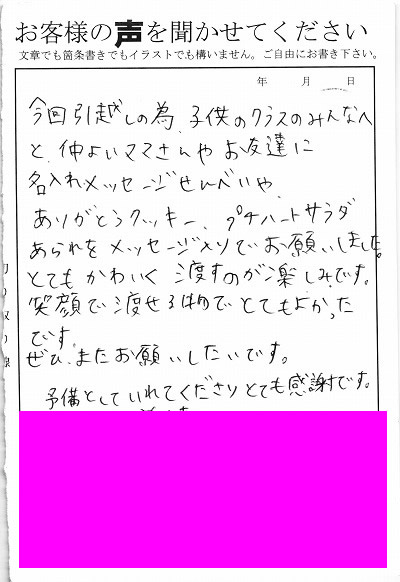 お客様の声を聞かせてください
文章でも箇条書きでもイラストでも構いません。ご自由にお書き下さい。
年 月 日
今回引越しの為、子供のクラスのみんなへ
と、仲よいママさんや お友達に
名入れメッセージせんべいや、
ありがとうクッキー、プチハートサラダ
あられをメッセージ入りでお願いしました。
とてもかわいく 渡すのが楽しみです。
笑顔で渡せる物でとてもよかった
です。
ぜひ、またお願いしたいです。
予備としていれてくださりとても感謝です。